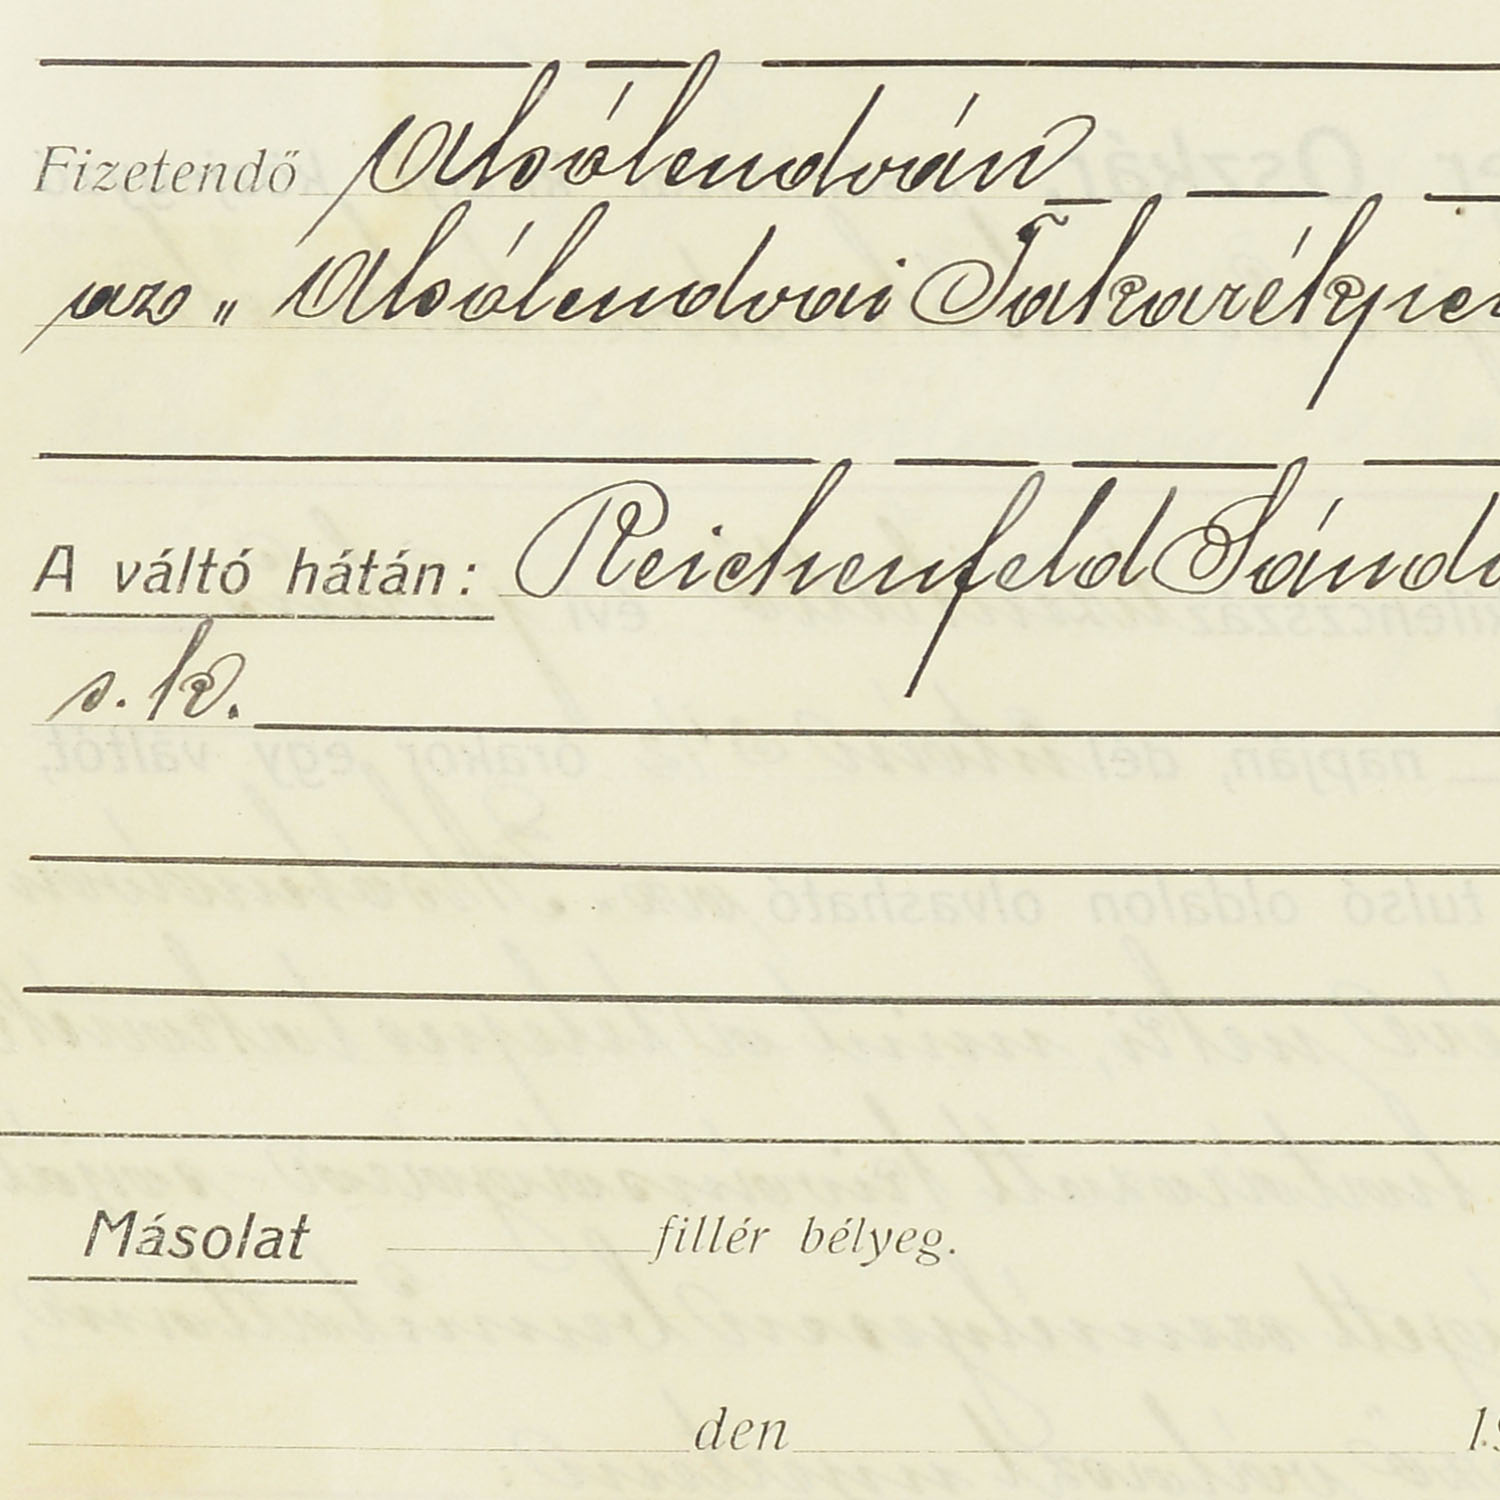 Fizetendő Alsólendván
az „Alsólendvai Takarékpén
A váltó hátán: Reichenfeld Sándo
s. k.
Másolat fillér bélyeg.
den 19